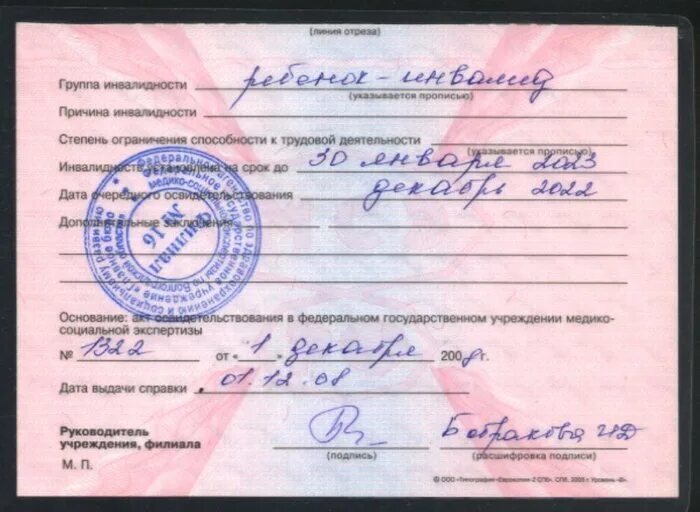 (линия отреза)
Группа инвалидности ребенок-инвалид
(указывается прописью)
Причина инвалидности
Степень ограничения способности к трудовой деятельности
(указывается прописью)
Инвалидность установлена на срок до 30 января 2023
Дата очередного освидетельствования декабрь 2022
Дополнительные заключения
Филиал
№ 16
Основание: акт освидетельствования в федеральном государственном учреждении медико-
социальной экспертизы
№ 1322 от «1» декабря 2008 г.
Дата выдачи справки 01.12.08
Руководитель
учреждения, филиала
Бобракова НД
(подпись) (расшифровка подписи)
М. П.